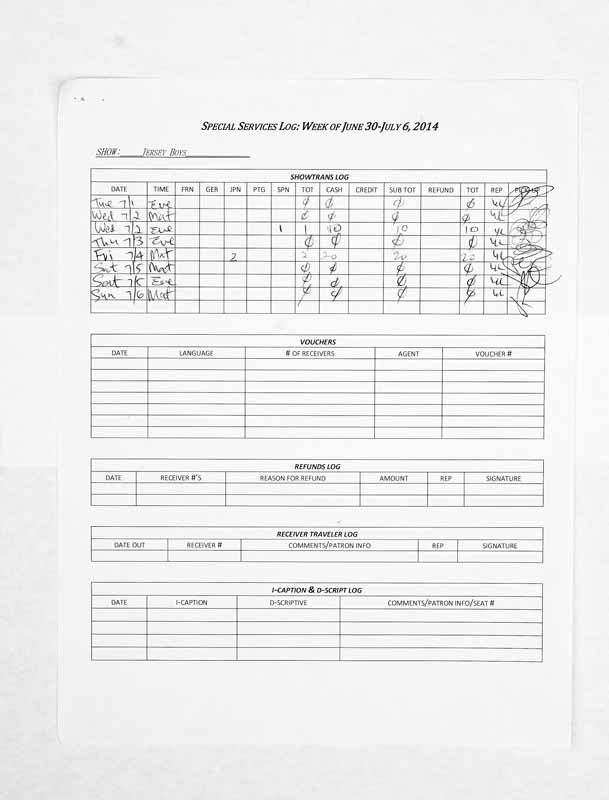 SPECIAL SERVICES LOG: WEEK OF JUNE 30-JULY 6, 2014
SHOW: JERSEY BOYS
SHOWTRANS LOG
DATE TIME FRN GER JPN PTG SPN TOT CASH CREDIT SUB TOT REFUND TOT REP
Tue 7/1 Eve ∅ ∅ ∅ ∅
Wed 7/2 Mat ∅ ∅ ∅ ∅
Wed 7/2 Eve 1 1 10 10 10
Thu 7/3 Eve ∅ ∅ ∅ ∅
Fri 7/4 Mat 2 2 20 20 20
Sat 7/5 Mat ∅ ∅ ∅ ∅
Sat 7/5 Eve ∅ ∅ ∅ ∅
Sun 7/6 Mat ∅ ∅ ∅ ∅
VOUCHERS
DATE LANGUAGE # OF RECEIVERS AGENT VOUCHER #
REFUNDS LOG
DATE RECEIVER #'S REASON FOR REFUND AMOUNT REP SIGNATURE
RECEIVER TRAVELER LOG
DATE OUT RECEIVER # COMMENTS/PATRON INFO REP SIGNATURE
I-CAPTION & D-SCRIPT LOG
DATE I-CAPTION D-SCRIPTIVE COMMENTS/PATRON INFO/SEAT #